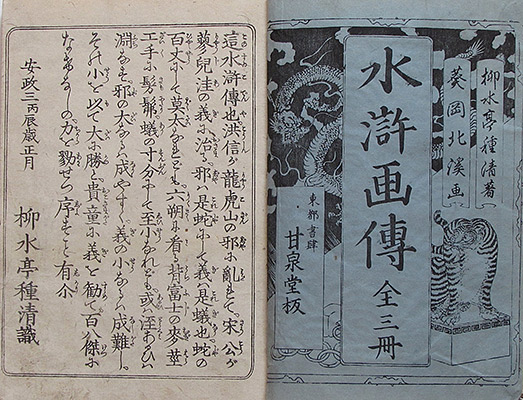 柳水亭種清著
葵岡北溪画
水滸画傳
全三冊
東都書肆
甘泉堂板
這水滸傳也洪信が龍虎山の邪に乱れて宋公が
蓼兒洼の義に治る邪ハ是蛇にして義ハ是蟻也蛇の
百丈にして莫大なるとも六朔に看る背富士の麥莖
工手に髣髴蟻の寸分にして至小なれども或ハ洼あるひハ
淵なす邪の大なるハ成やすく義の小なるハ成難し
その小を以て大に勝と貴童に義を勧て百八傑に
なるの力を勠せつ序すこと有尒
安政三丙辰歳正月
柳水亭種清識